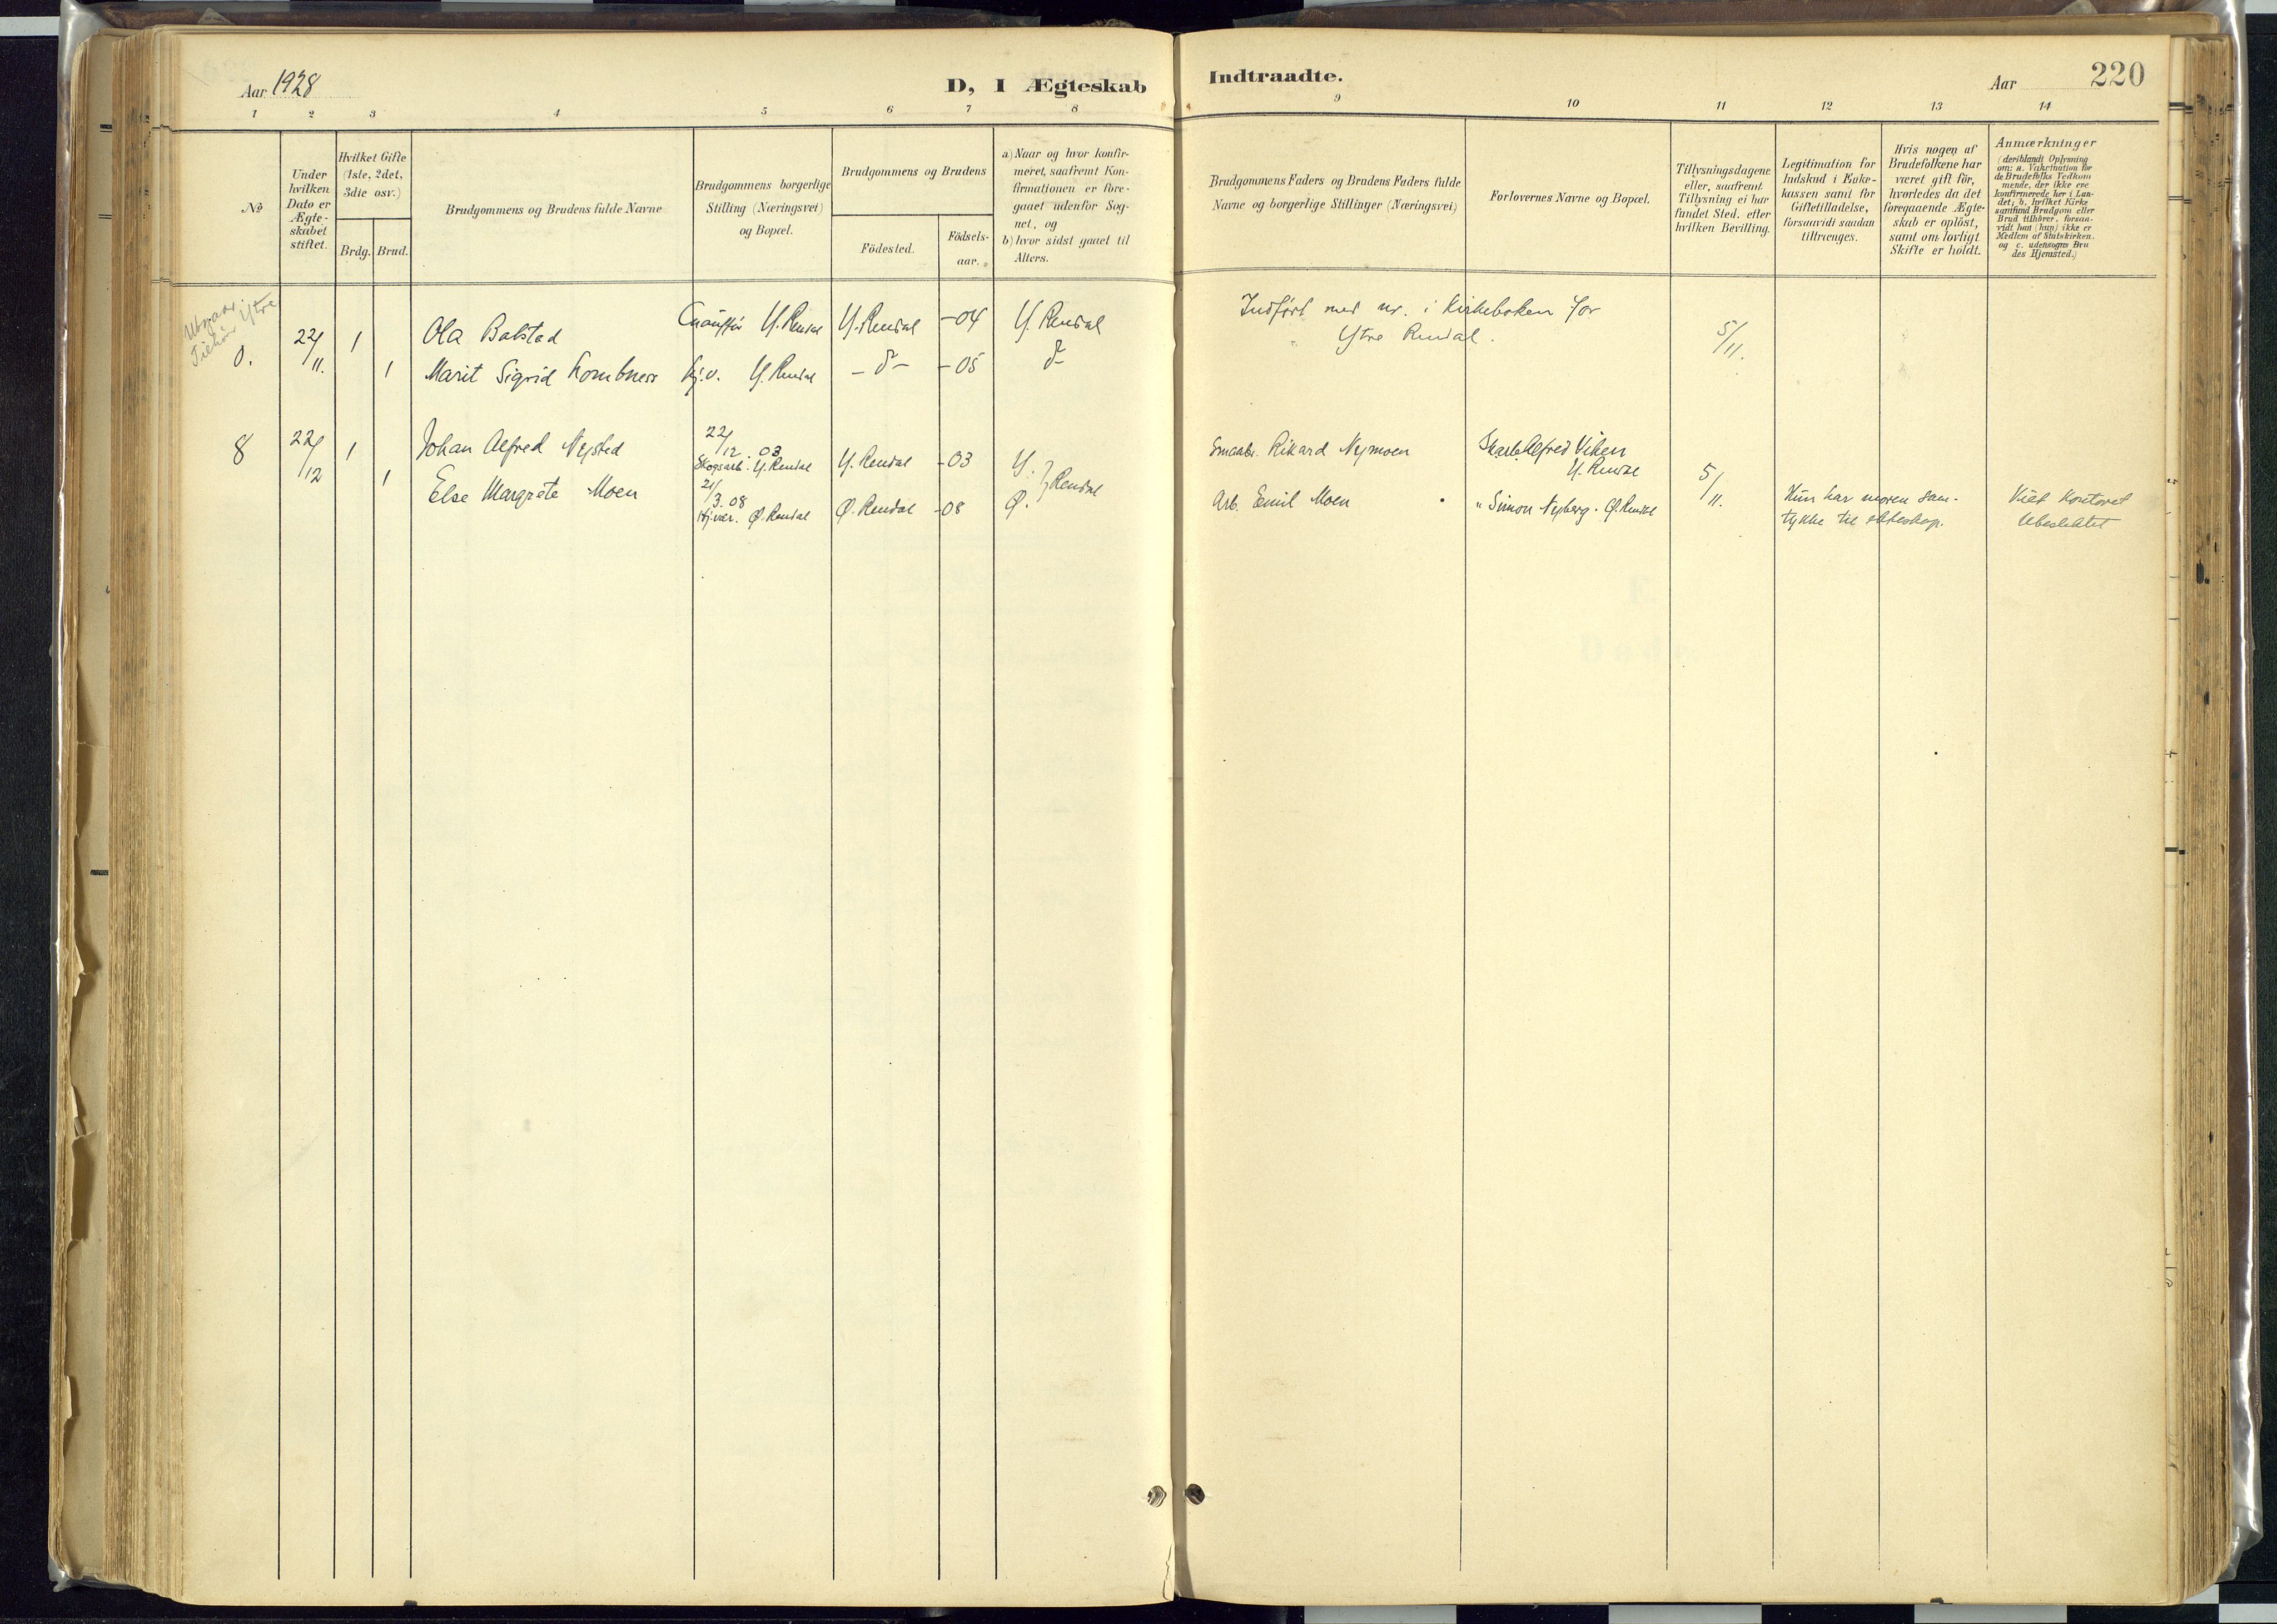 Aar 1928
D, I Ægteskab Indtraadte.
Aar 220
1 2 3 4 5 6 7 8 9 10 11 12 13 14
No
Under
hvilken
Dato er
Ægte-
skabet
stiftet.
Hvilket Gifte
(1ste, 2det,
3die osv.)
Brdg. Brud.
Brudgommens og Brudens fulde Navne
Brudgommens borgerlige
Stilling (Næringsvei)
og Bopæl.
Brudgommens og Brudens
Födested.
Födsels-
aar.
a) Naar og hvor konfir-
meret, saafremt Kon-
firmationen er fore-
gaaet udenfor Sog-
net, og
b) hvor sidst gaaet til
Alters.
Brudgommens Faders og Brudens Faders fulde
Navne og borgerlige Stillinger (Næringsvei)
Forlovernes Navne og Bopæl.
Tillysningsdagene
eller, saafremt
Tillysning ei har
fundet Sted, efter
hvilken Bevilling.
Legitimation for
Indskud i Enke-
kassen samt for
Giftetilladelse,
forsaavidt saadan
tiltrænges.
Hvis nogen af
Brudefolkene har
været gift för,
hvorledes da det
foregaaende Ægte-
skab er oplöst,
samt om lovligt
Skifte er holdt.
Anmærkninger
(deriblandt Oplysning
om: a. Vakcination for
de Brudefolks Vedkom
mende, der ikke ere
konfirmerede her i Lan-
det; b. hvilket Kirke
samfund Brudgom eller
Brud tilhörer, forsaa-
vidt han (hun) ikke er
Medlem af Statskirken.
og c. udensogns Bru
des Hjemsted.)
Ytre
0. 22/11. 1 Ola Balstad Y. Rendal Y. Rendal -04 Y. Rendal
Indført med nr. i Kirkeboken for
Ytre Rendal.
5/11.
1 Marit Sigrid Hj.v. Y. Rendal - do - -05 do
8 22/12 1 Johan Alfred Nysted 22/12 03
Skogsarb. Y. Rendal Y. Rendal -03 Y. } Rendal
Smaabr. Rikard Nymoen Skarb. Alfred Viken
Y. Rendal
1 Else Margrete Moen 21/3. 08
Hj.vær. Ø. Rendal Ø. Rendal -08 Ø.
Arb. Emil Moen " Simon Nyberg. Ø. Rendal
5/11.
Hun har moren sam-
tykke til ekteskap.
Viet kontoret
Ubeslektet